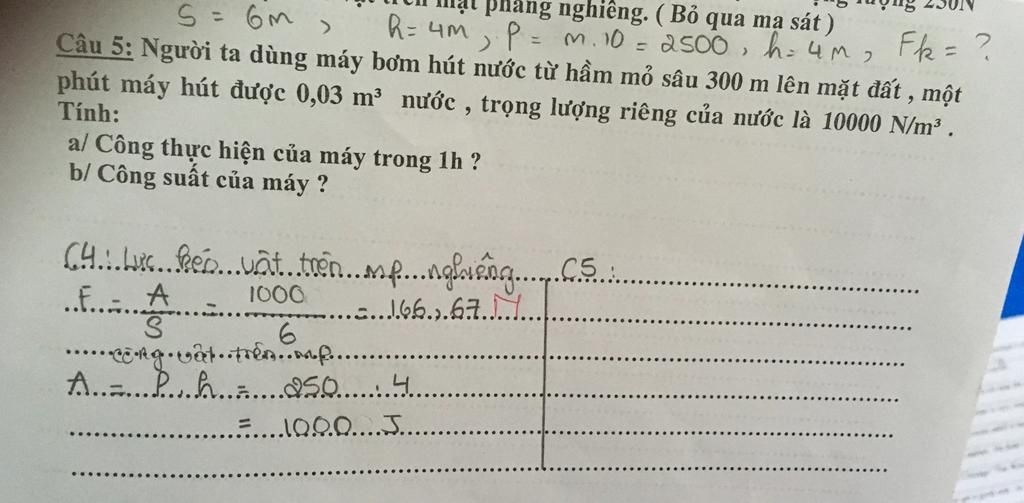 mặt phẳng nghiêng. ( Bỏ qua ma sát )
S = 6m , h = 4m , P = m.10 = 2500 , h = 4m , Fk = ?
Câu 5: Người ta dùng máy bơm hút nước từ hầm mỏ sâu 300 m lên mặt đất , một
phút máy hút được 0,03 m³ nước , trọng lượng riêng của nước là 10000 N/m³ .
Tính:
a/ Công thực hiện của máy trong 1h ?
b/ Công suất của máy ?
C4 : Lực kéo vật trên mp nghiêng C5 :
F = A/S = 1000/6 = 166,67 N
công vật trên mp
A = P . h = 250 . 4
= 1000 J